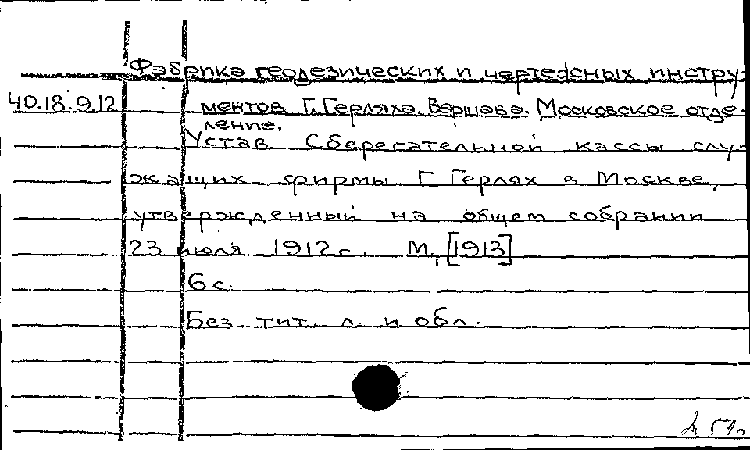 Фабрика геодезических и чертежных инстру-
40.18.9.12 ментов Г.Герляха. Варшава. Московское отде-
ление.
Устав Сберегательной кассы слу-
жащих фирмы Г. Герлях в Москве,
утвержденный на общем собрании
23 июля 1912 г. М., [1913]
6 с.
Без тит. л. и обл.